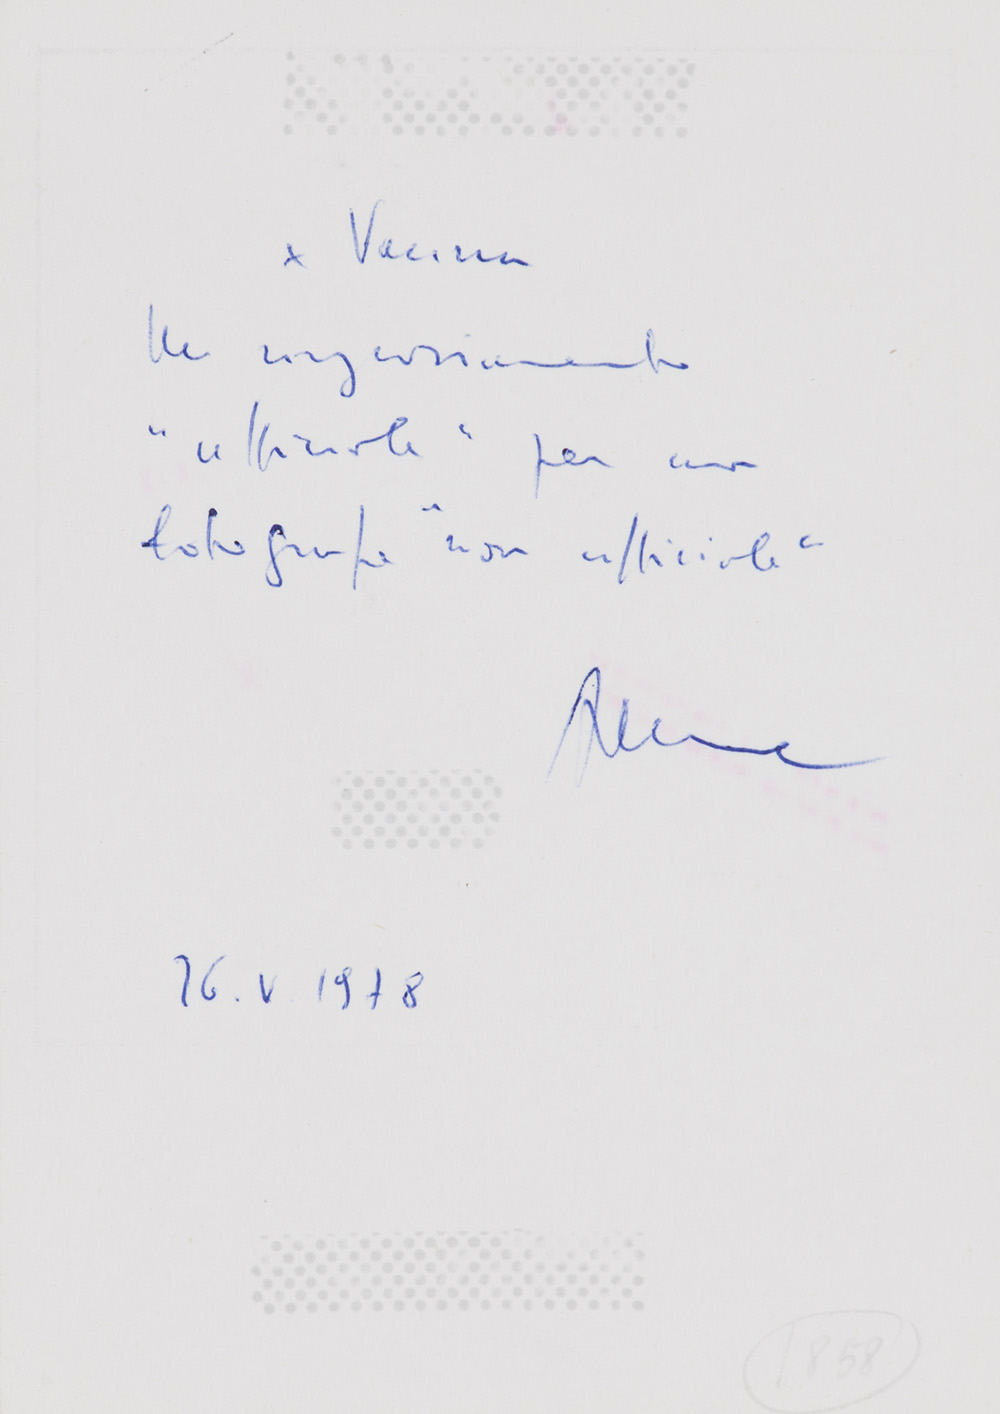 x Vaccina
Un ringraziamento
"ufficiale" per una
fotografa "non ufficiale"
16.V.1978
1858